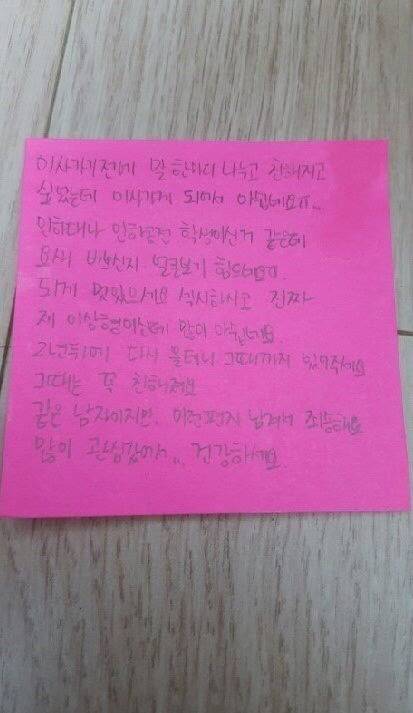 이사가기전에 말 한마디 나누고 친해지고
싶었는데 이사가게 되어서 아쉽네요ㅠ..
인하대나 인하공전 학생이신거 같은데
요새 바쁘신지 얼굴보기 힘드네요.
되게 멋있으세요 섹시하시고 진짜
제 이상형이신데 많이 아쉽네요.
2년뒤에 다시 올테니 그때까지 있어주세요
그때는 꼭 친해져요
같은 남자이지만, 이런편지 남겨서 죄송해요
많이 관심갔어서... 건강하세요.